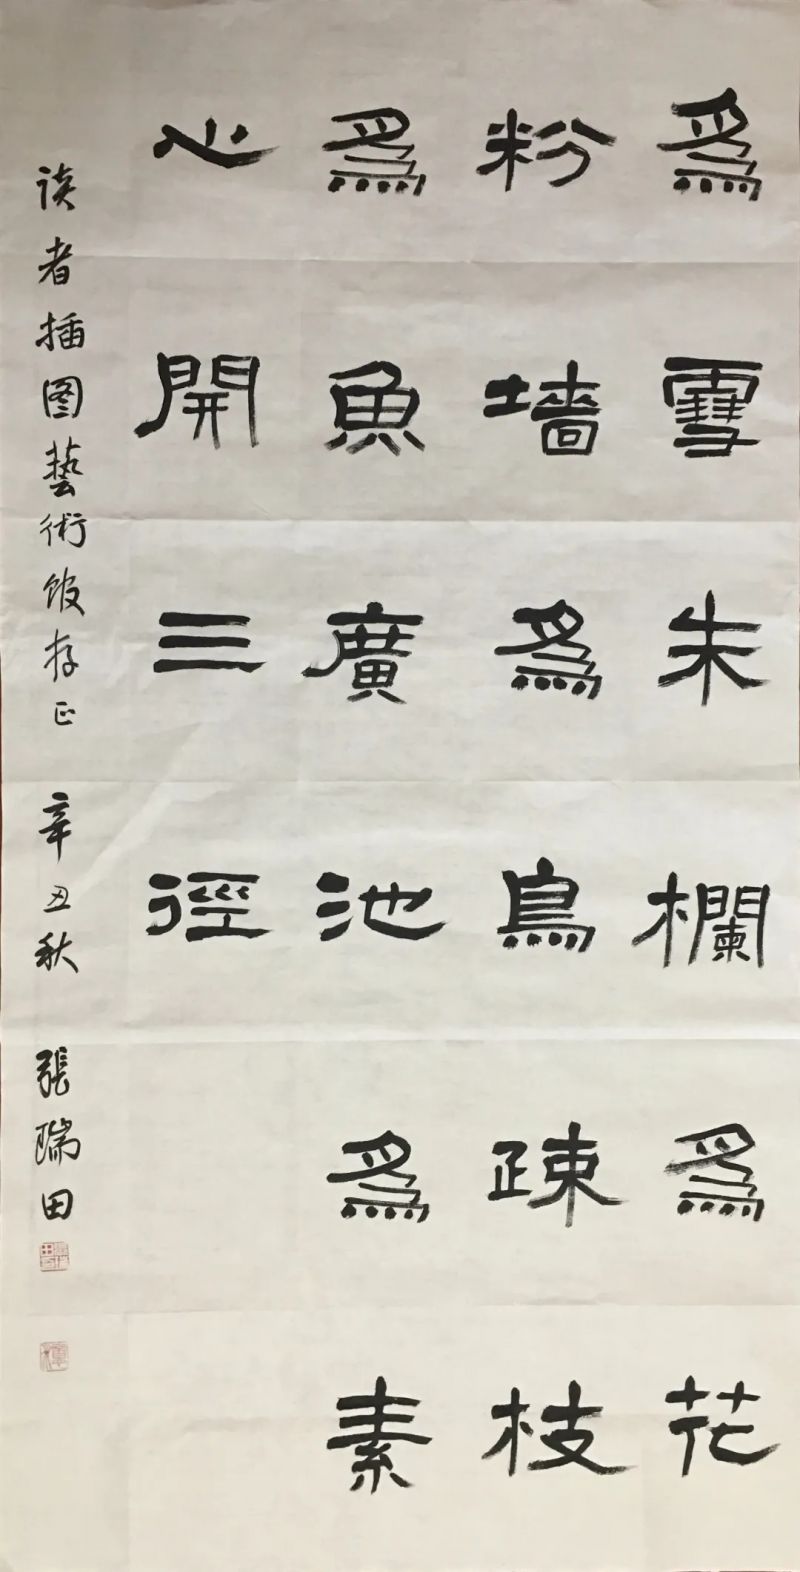 爲雪朱欄爲花
粉墻爲鳥疎枝
爲魚廣池爲素
心開三徑
读者插图藝術馆存正 辛丑秋 張瑞田